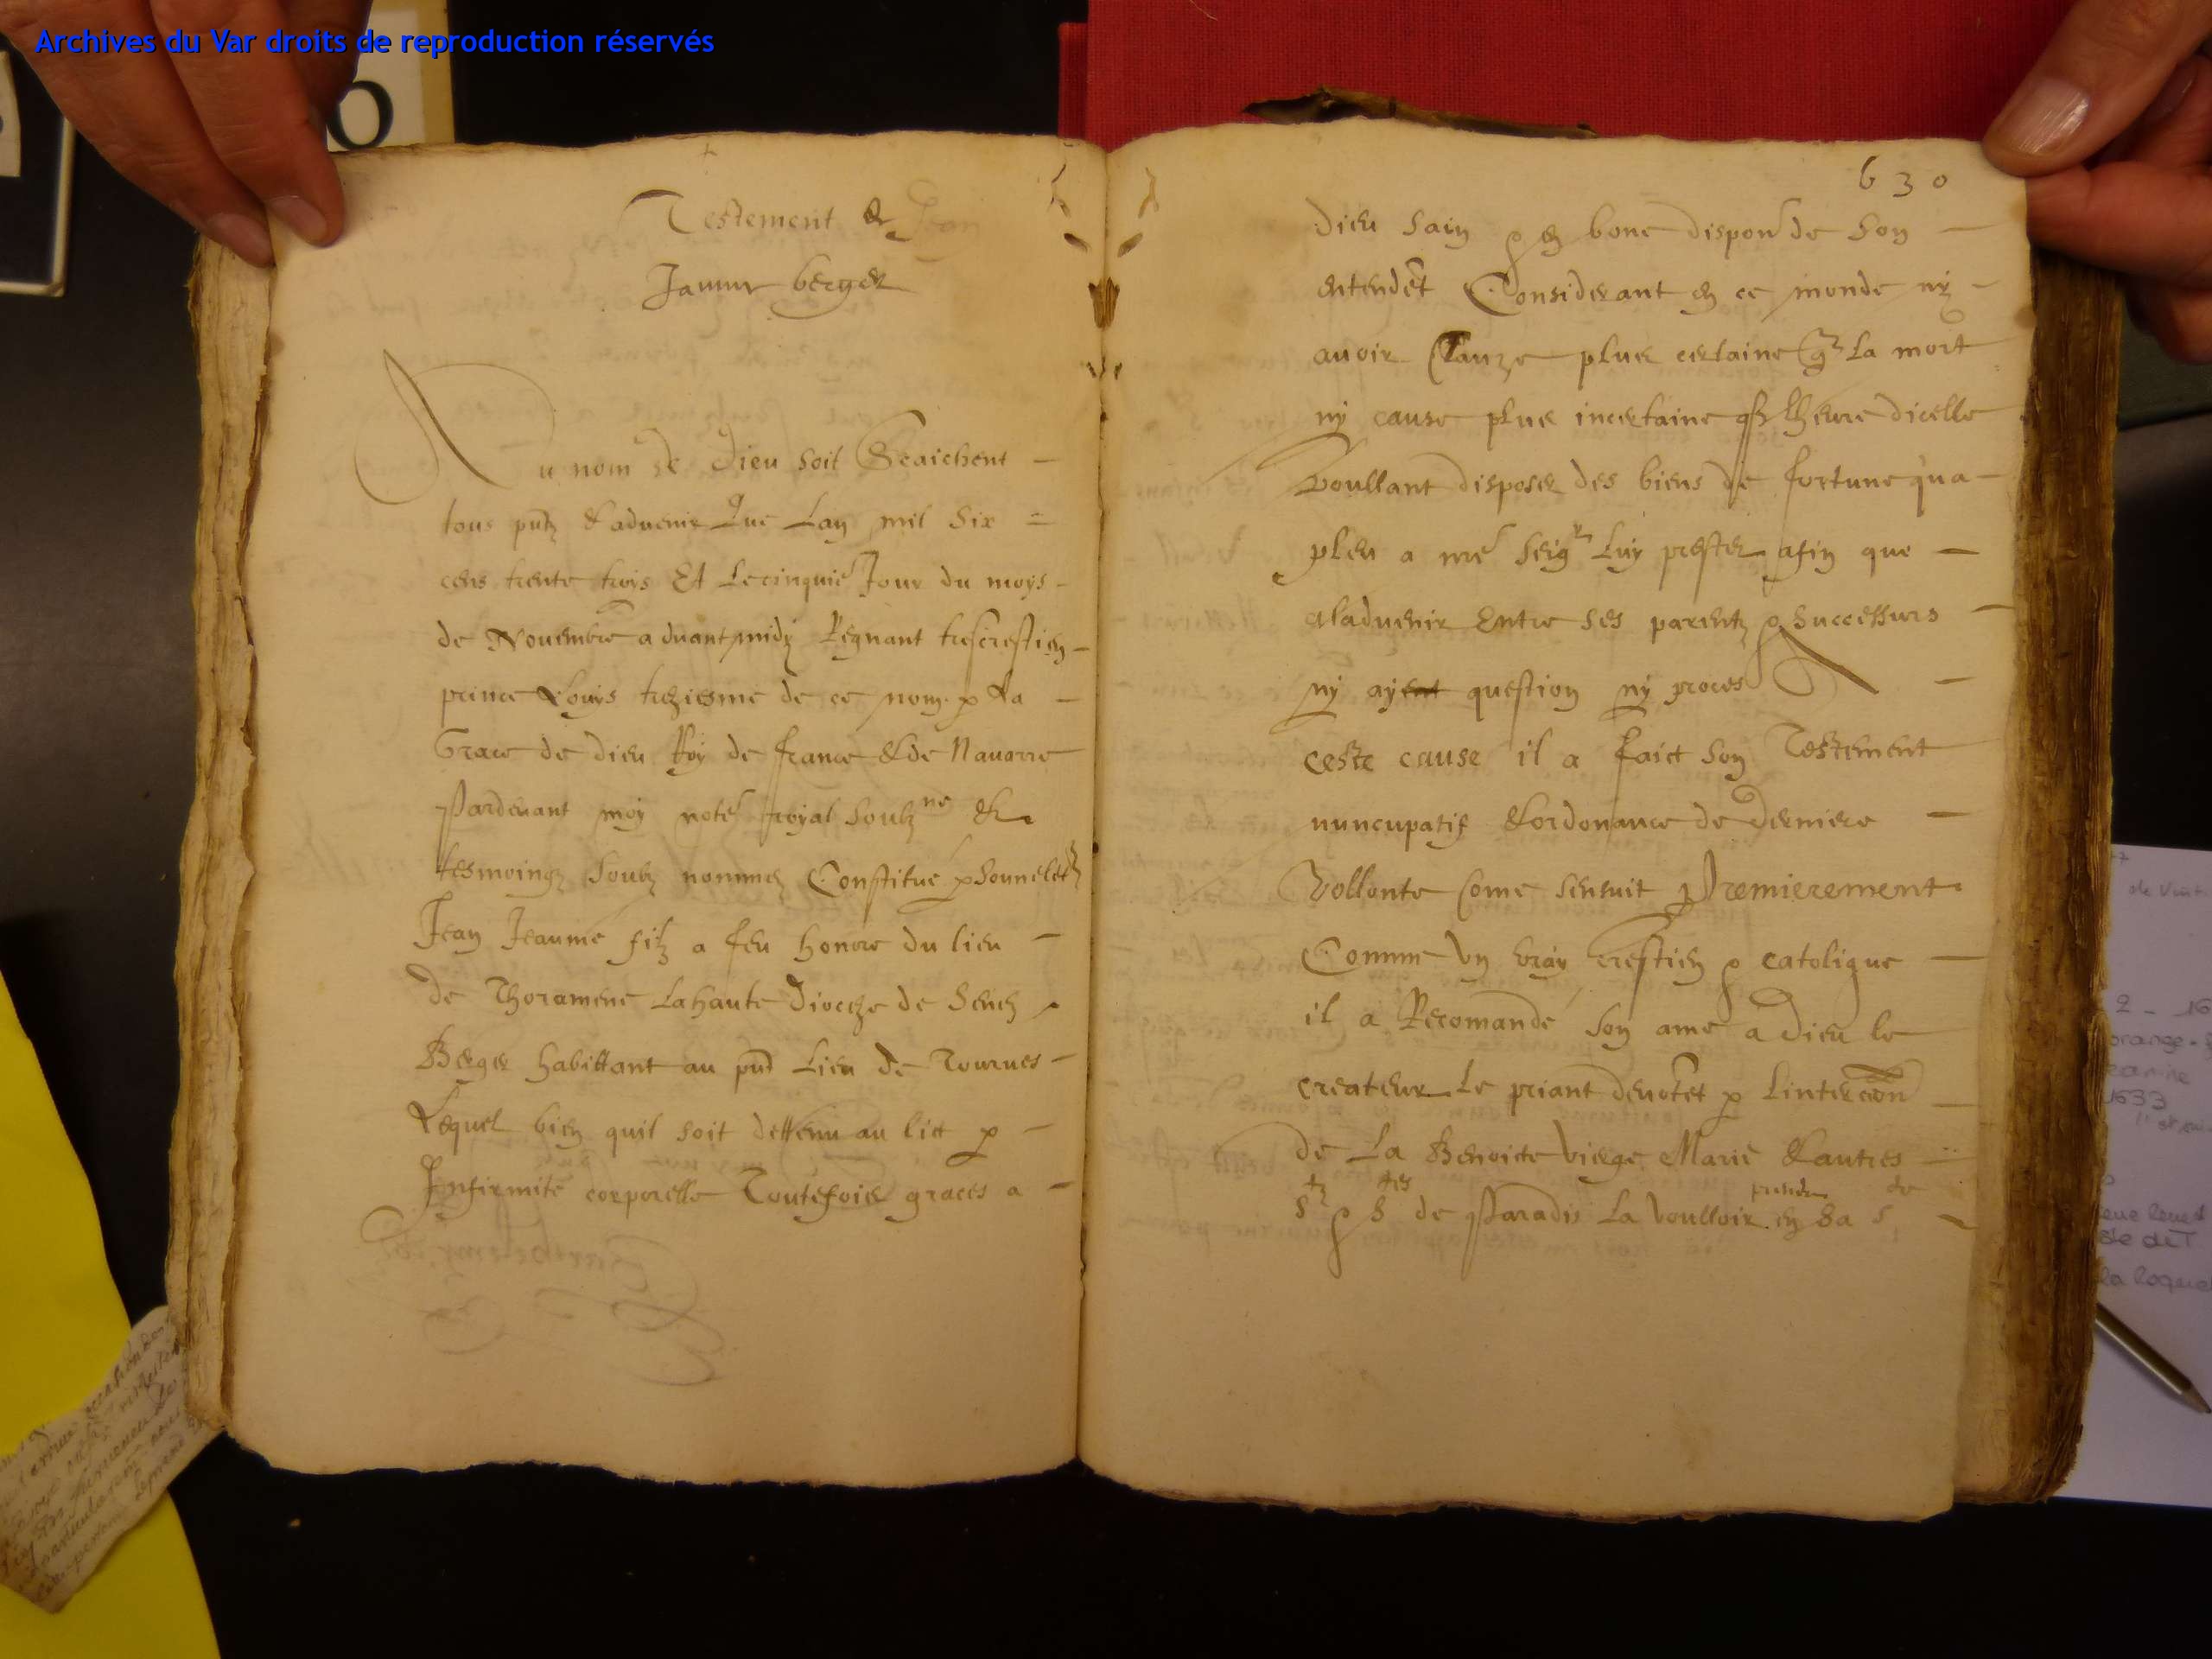 Archives du Var droits de reproduction réservés
Testement de Jean
Jaume berger
Au nom de Dieu soit Scaichent
tous pntz & advenir Que Lan mil Six
cens trente trois Et Le cinquie Jour du moys
de Novembre advant midy Regnant trescrestien
prince Louys treziesme de ce nom p La
Grace de Dieu Roy de france & de Navarre
Pardevant moy note royal soubzne &
tesmoingz soubz nommez Constitue psonnelet
Jean Jeaume filz a feu honore du lieu
de Thoramene La haute Dioceze de Senez
Berger habittant au pnt Lieu de Tourves
Lequel bien quil soit dettenu au lict p
Infirmité corporelle Toutefois graces a
630
Dieu Sain & en bone dispon de Son
entendet Considerant en ce monde ny
avoir Cauze plus certaine q La mort
ny cause plus incertaine q lheure dicelle
Voullant disposer des biens de fortune qua
pleu a nre Seigr Luy prester afin que
aladvenir Entre ses parentz & Successurs
ny ayent question ny proces A
ceste cause il a faict son Testement
nuncupatif & ordonance de Derniere
Vollonte Come sensuit Premierement
Comme Un vray crestien & catolique
il a Recomandé son ame a Dieu le
createur Le priant devotet p Lintercon
de La Benoicte Vierge Marie & autres
stz & stes de Paradis La voulloir prendre en Sa ste